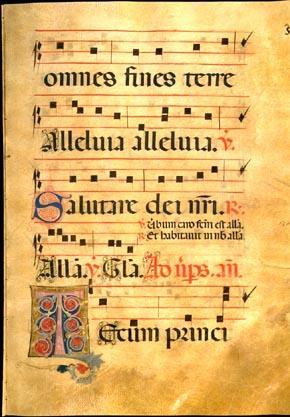 omnes fines terre
Alleluia alleluia. v.
Salutare dei nr̃i. R.
v. Uerbum caro fcm̃ est alla.
R. Et habitauit in nob alla.
Alla. v. Gla. Ad ṽps. añ.
Tecum princi